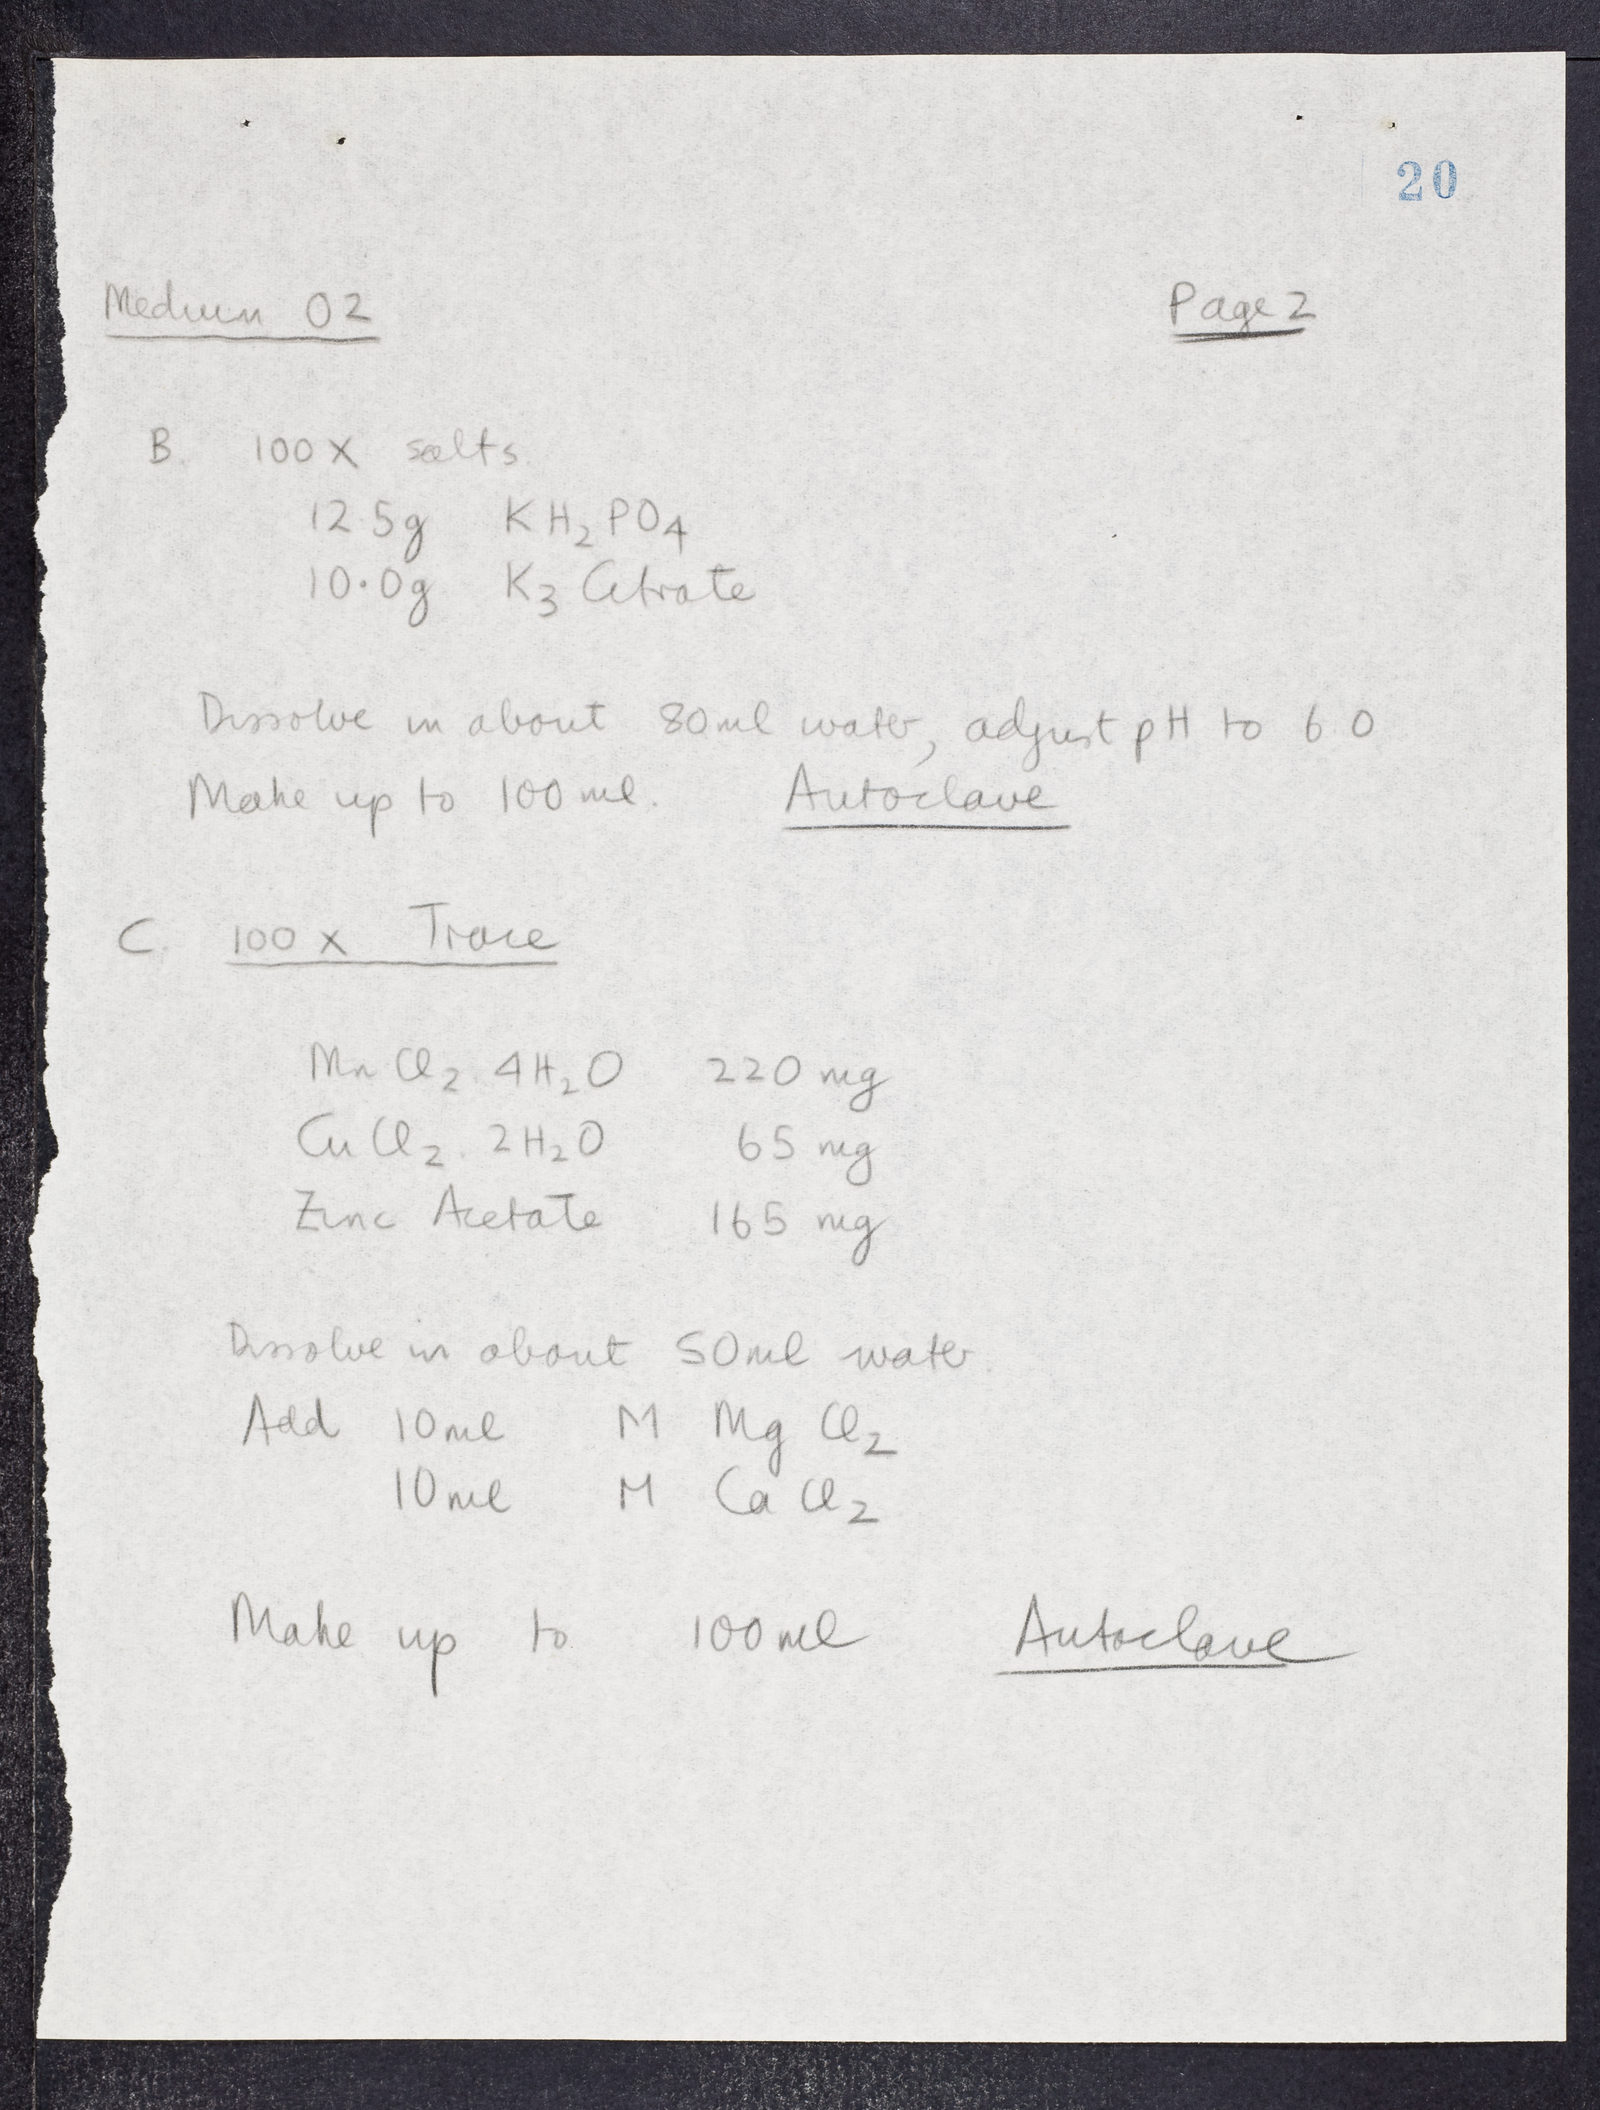 20
Medium O2 Page 2
B. 100 X salts.
12 5g KH₂PO₄
10.0g K₃ Citrate
Dissolve in about 80ml water, adjust pH to 6 0
Make up to 100 ml. Autoclave
C. 100 x Trace
MnCl₂. 4H₂O 220 mg
CuCl₂. 2H₂O 65 mg
Zinc Acetate 165 mg
Dissolve in about 50ml water.
Add 10ml M MgCl₂
10ml M CaCl₂
Make up to 100ml Autoclave